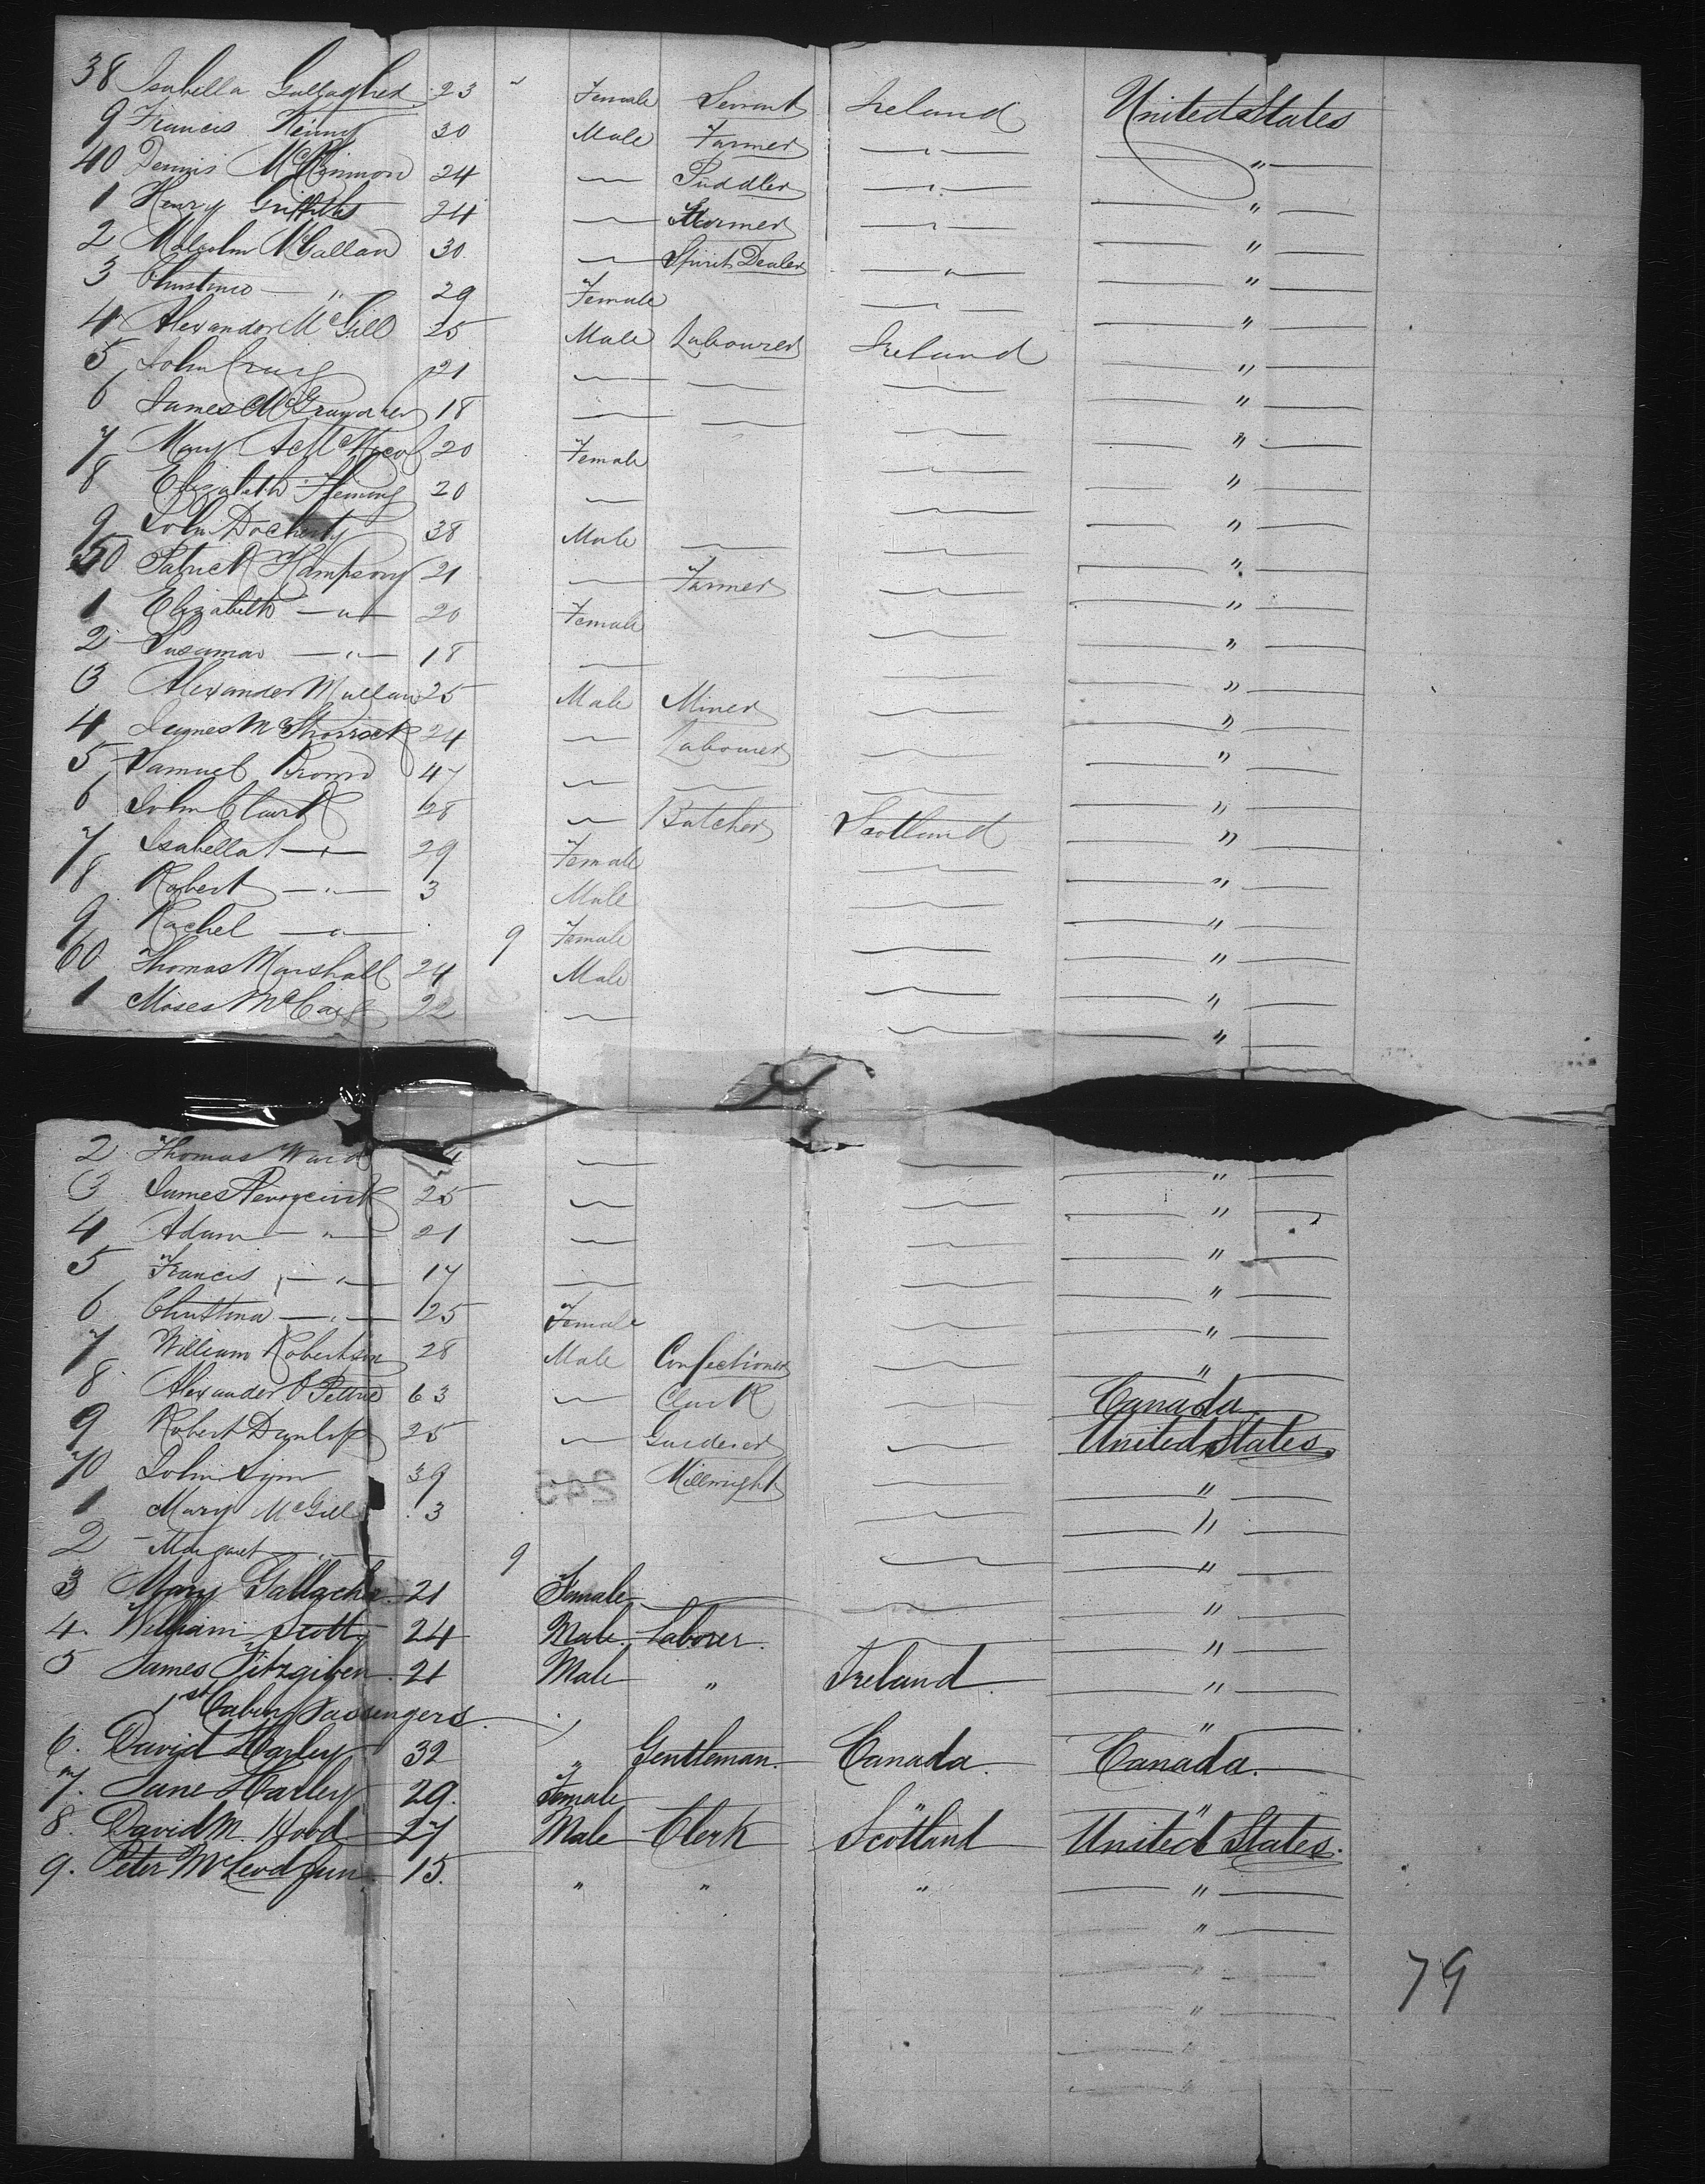 38 Isabella Gallagher 23 " Female Servant Ireland United States
9 Francis Kenny 30 Male Farmer — " — — " —
40 Dennis McKinnon 24 — Puddler — " — — " —
1 Henry Griffiths 24 — Farmer — " — — " —
2 Malcolm McCallan 30 — Spirit Dealer — " — — " —
3 Christina — " — 29 Female — — " —
4 Alexander McGill 25 Male Labourer Ireland — " —
5 John Craig 21 — — — — " —
6 James 18 — — — — " —
7 Mary 20 Female — — " —
8 Elizabeth Fleming 20 — — — " —
9 John Docherty 38 Male — — — " —
50 Patrick Hampsony 21 — Farmer — — " —
1 Elizabeth — " — 20 Female — — " —
2 Susannah — " — 18 — — — " —
3 Alexander Mullan 25 Male Miner — — " —
4 James 24 — Labourer — — " —
5 Samuel Brown 47 — — — — " —
6 John Clark 28 — Butcher Scotland — " —
7 Isabella — " — 29 Female — — " —
8 Robert — " — 3 Male — — " —
9 Rachel — " — 9 Female — — " —
60 Thomas Marshall 24 Male — — " —
1 Moses 22 — — — " —
2 Thomas Ward 4 — — — " —
3 James 25 — — — " —
4 Adam — " — 21 — — — " —
5 Francis — " — 17 — — — " —
6 Christina — " — 25 Female — — " —
7 William Robertson 28 Male Confectioner — — " —
8 Alexander Pettrie 63 — Clerk — Canada
9 Robert Dunlop 25 — Gardener — United States
70 John Syme 39 — Millwright — — " —
1 Mary McGill 3 — — " —
2 Margaret — " — 9 — — " —
3 Mary Gallacher 21 Female — — — " —
4. William Scott 24 Male. Laborer. — — " —
5 James Fitzgiben 21 Male " Ireland. — " —
1st Cabin Passengers. — " —
6. David Harley 32 " Gentleman. Canada. Canada.
7. Jane Harley 29. Female " — " —
8. David M. Hood 27 Male Clerk Scotland United States.
9. Peter McLeod Jun. 15. " " " — " —
79